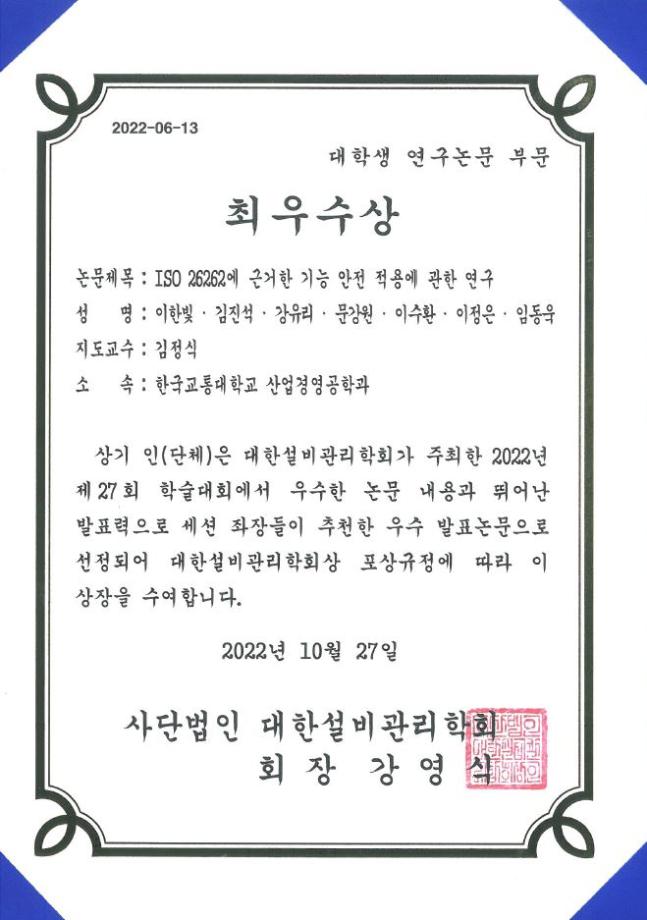 2022-06-13
대학생 연구논문 부문
최우수상
논문제목 : ISO 26262에 근거한 기능 안전 적용에 관한 연구
성 명 : 이한빛 · 김진석 · 강유리 · 문강원 · 이수환 · 이정은 · 임동욱
지도교수 : 김정식
소 속 : 한국교통대학교 산업경영공학과
상기 인(단체)은 대한설비관리학회가 주최한 2022년
제27회 학술대회에서 우수한 논문 내용과 뛰어난
발표력으로 세션 좌장들이 추천한 우수 발표논문으로
선정되어 대한설비관리학회상 포상규정에 따라 이
상장을 수여합니다.
2022년 10월 27일
사단법인 대한설비관리학회
회 장 강 영 식